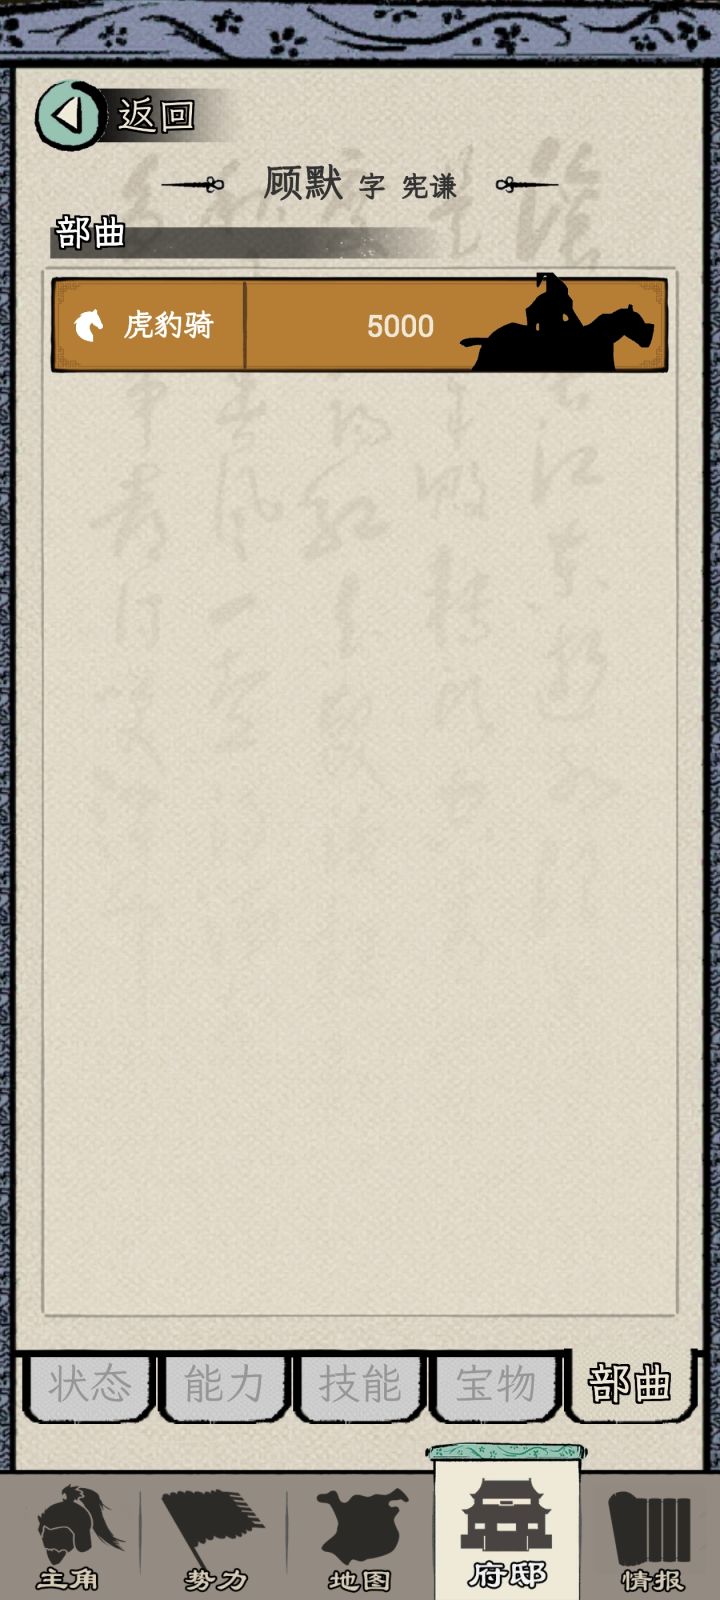 返回
顾默 字 宪谦
部曲
虎豹骑 5000
状态 能力 技能 宝物 部曲
主角 势力 地图 府邸 情报